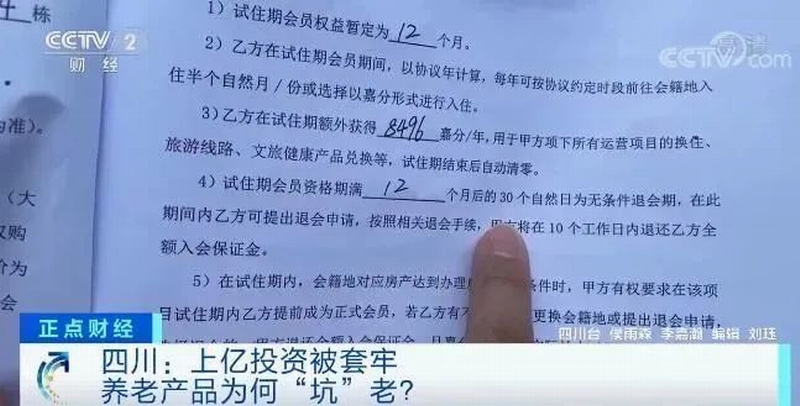 栋
CCTV 2
财经
CCTV.com
1）试住期会员权益暂定为 12 个月。
2）乙方在试住期会员期间，以协议年计算，每年可按协议约定时段前往会籍地入
住半个自然月/份或选择以嘉分形式进行入住。
为准）。
3）乙方在试住期额外获得 8496 嘉分/年，用于甲方项下所有运营项目的换住、
旅游线路、文旅健康产品兑换等，试住期结束后自动清零。
（大
4）试住期会员资格期满 12 个月后的30个自然日为无条件退会期，在此
写）
期间内乙方可提出退会申请，按照相关退会手续，甲方将在10个工作日内退还乙方全
价为
额入会保证金。
会
5）在试住期内，会籍地对应房产达到办理 条件时，甲方有权要求在该项
目试住期内乙方提前成为正式会员，若乙方有 更换会籍地或提出退会申请，
正点财经
四川台 侯雨森 李嘉潮 编辑 刘珏
四川：上亿投资被套牢
养老产品为何“坑”老？